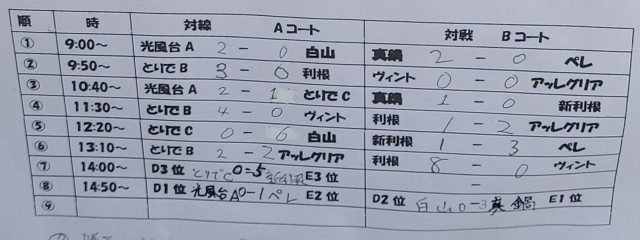 順 時 対線 Aコート 対戦 Bコート
① 9:00～ 光風台A 2 － 0 白山 真鍋 2 － 0 ペレ
② 9:50～ とりでB 3 － 0 利根 ヴィント 0 － 0 アッレグリア
③ 10:40～ 光風台A 2 － 1 とりでC 真鍋 1 － 0 新利根
④ 11:30～ とりでB 4 － 0 ヴィント 利根 1 － 2 アッレグリア
⑤ 12:20～ とりでC 0 － 6 白山 新利根 1 － 3 ペレ
⑥ 13:10～ とりでB 2 － 2 アッレグリア 利根 8 － 0 ヴィント
⑦ 14:00～ D3位 とりでC 0－5 新利根 E3位 －
⑧ 14:50～ D1位 光風台A 0－1 ペレ E2位 D2位 白山 0－3 真鍋 E1位
⑨